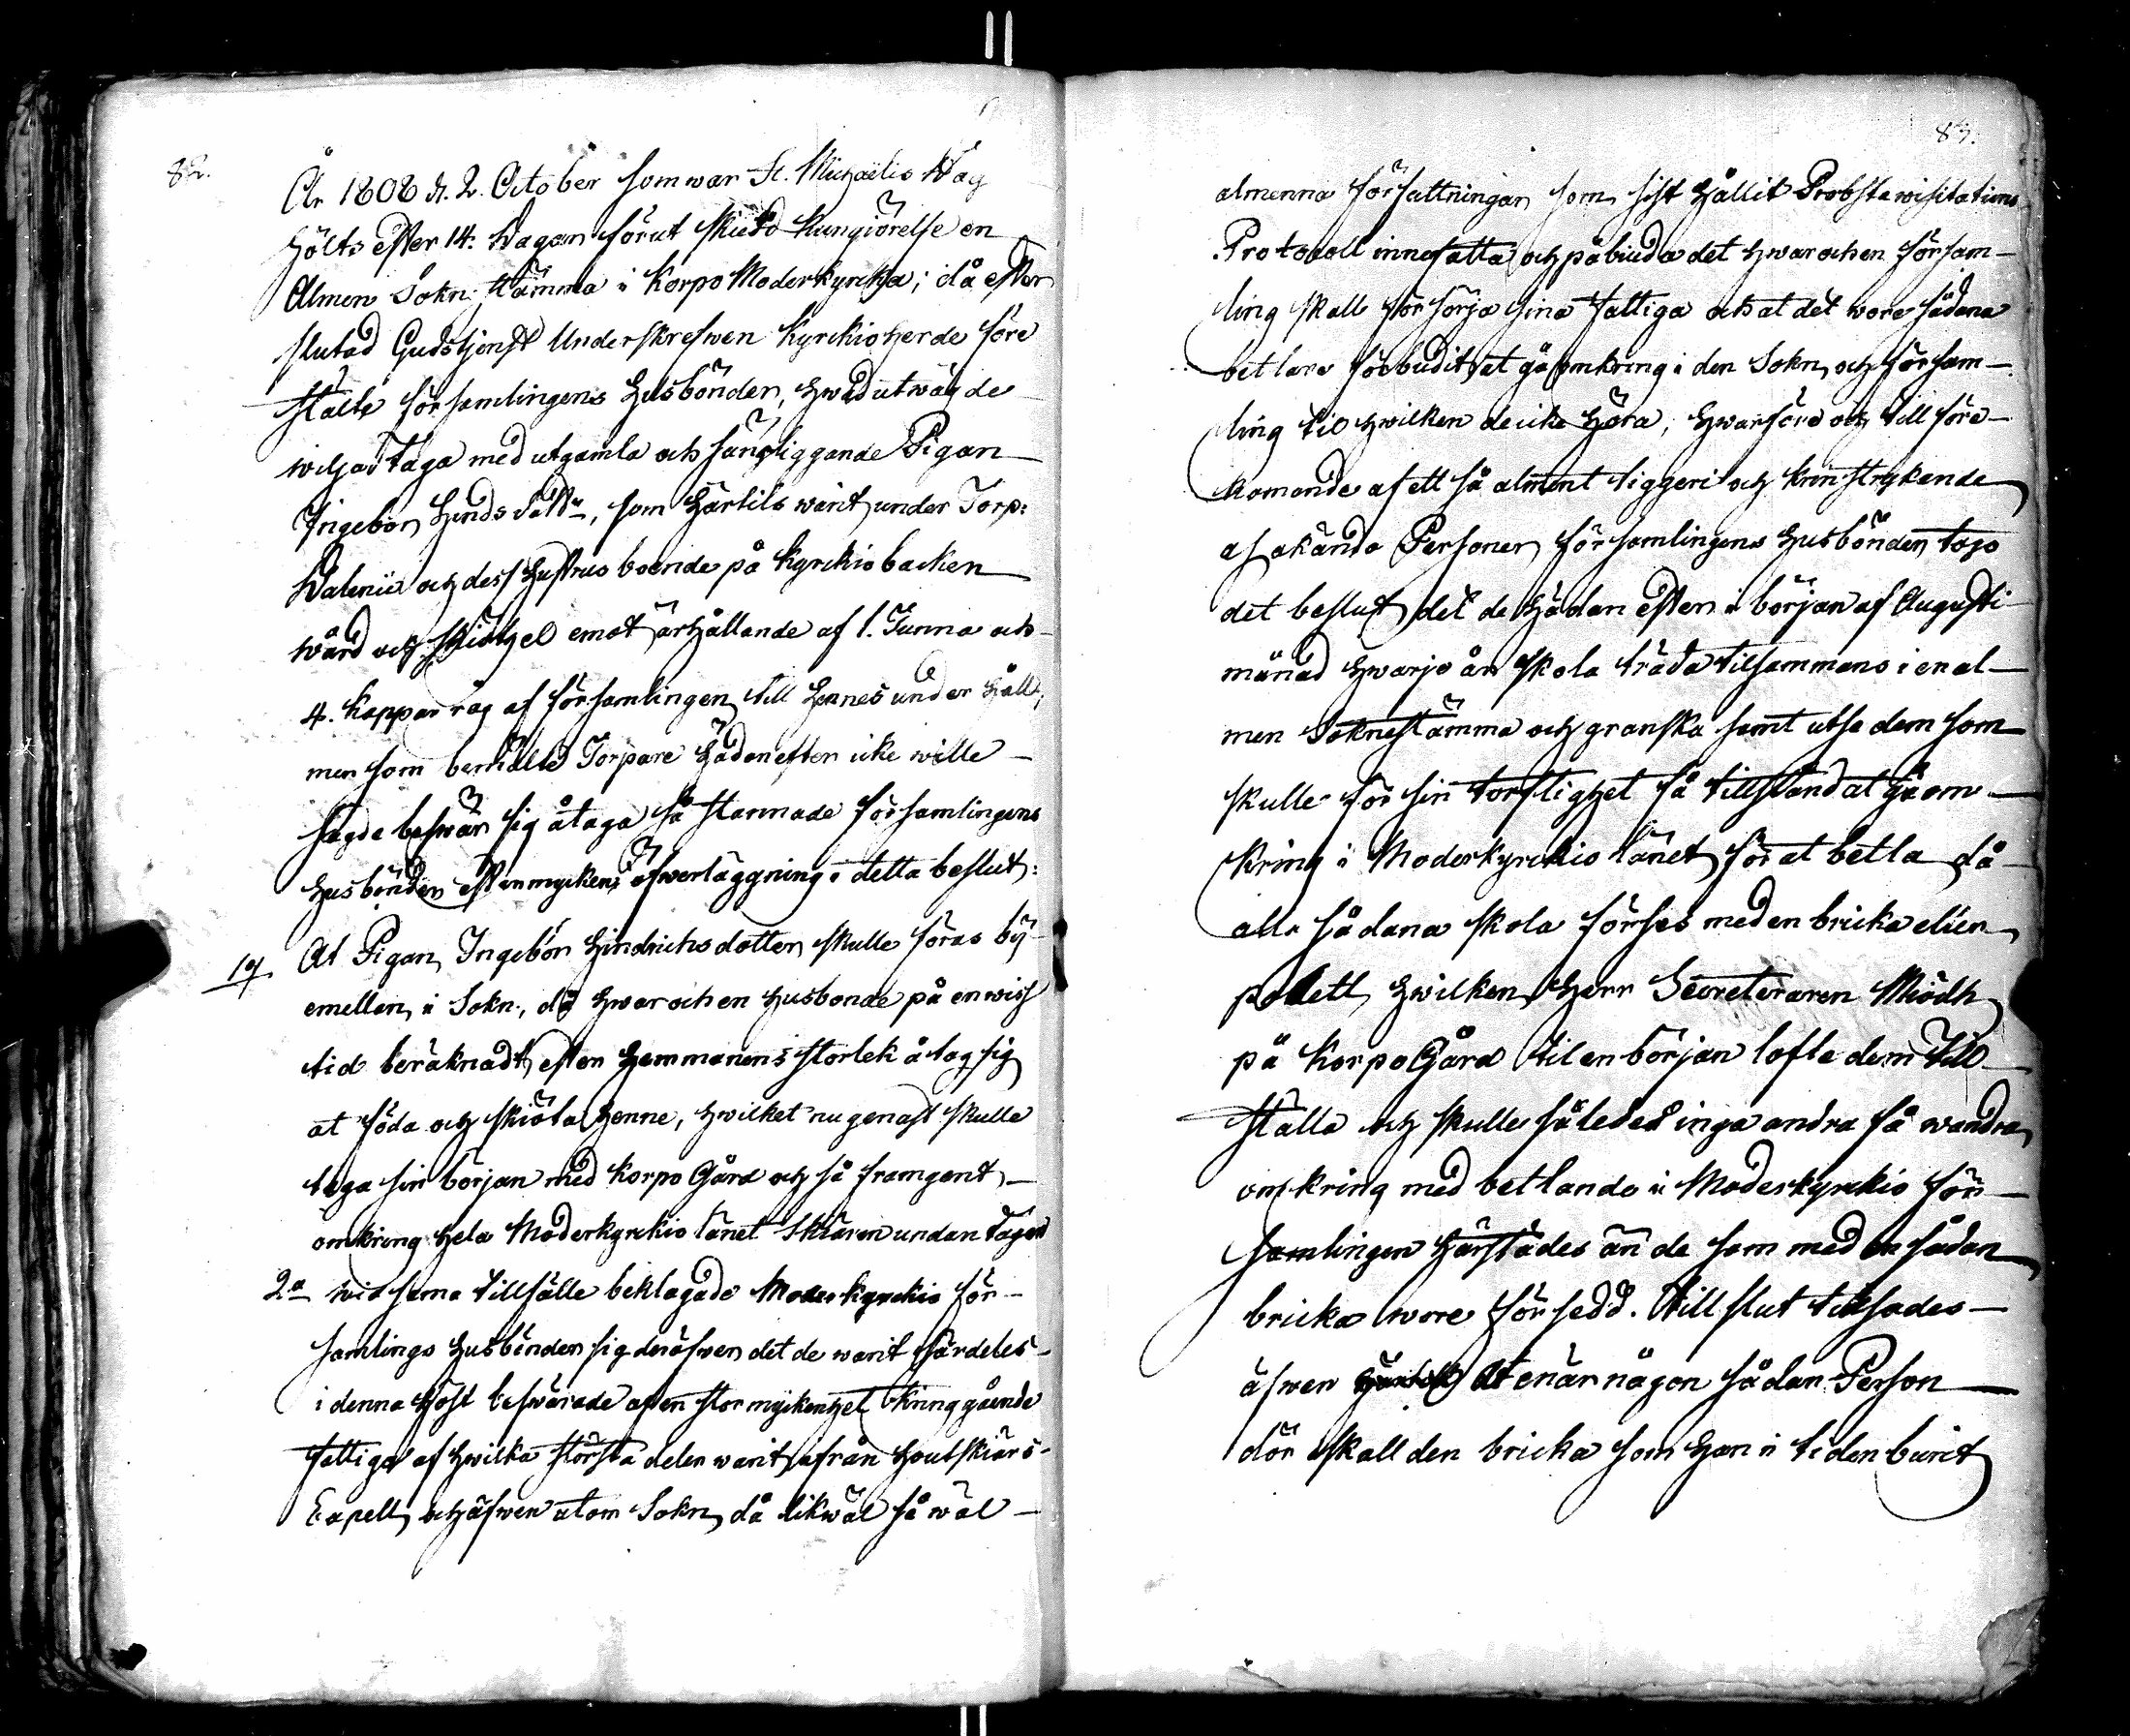 82.
År 1808 d. 2. October som war St. Michaëlis Dag
hölts efter 14. Dagar förut skiedd kungiörelse en
Almen Sokn: stämma i Korpo Moderkyrcka; då efter
slutad Gudstjenst Underskrefwen Kyrckioherde före
stälte församlingens Husbönder, hwad utwäg de
wilja taga med utgamla och sängliggande Pigan
Ingebor Hinds dottr, som härtils warit under Torp:
och dess Hustrus boende på Kyrckiobacken
wård och skiötsel emot ärhållande af 1. Tunna och
4. kappar råg af församlingen till hennes underhåll;
men som bemälte Torpare hädanefter icke wille
sagde beswär sig åtaga så stannade församlingens
Husbönder efter mycken öfwerläggning i detta beslut:
1o. At Pigan Ingebor Hindrichsdotter skulle föras by
emellan i Sokn:, då hwar och en husbonde på en wiss
tid beräknadt efter Hemmanens storlek åtog sig
at föda och skiöta henne, hwilket nu genast skulle
taga sin början med Korpo Gård och så framgent
omkring hela Moderkyrckio länet Skiären undantagne
2o wid sama tillfälle beklagade Moderkyrckio för-
samlings Husbönder sig deröfwer det de warit särdeles
i denna höst beswärade af en stor myckenhet kringgående
fattiga af hwilka största delen warit ifrån Houtskiärs
Capell och äfwen utom Sokn, då likwäl så wäl
83.
almenna författningar som sist hållit Probstewisitations
Protocoll innefatta och påbiuda det hwar och en församling
ling skall försörja sina fattiga och at det wore sådana
betlare förbudit at gå omkring i den Sokn och försam-
ling til hwilken de icke höra; hwarföre och till före-
komande af ett så alment tiggeri och kringstrykande
af okända Personer församlingens Husbönder togo
det beslut, det de hädan efter i början af Augusti
månad hwarje år skola träda tilsammans i en al-
men Soknestämma och granska samt utse dem som
skulle för sin torftighet få tillstånd at gå om-
kring i Moderkyrckio länet för at betla då
alla sådana skola förses med en bricka eller
polett, hwilken Herr Secreteraren Miödh
på Korpo Gård til en början lofte dem till
ställa och skulle således inga andra få wandra
omkring med betlande i Moderkyrckio för-
samlingen härstädes än de som med en sådan
bricka wore försedd. Till slut tilsades
äfwen at enär någon sådan Person
dör skall den bricka som han i tiden burit